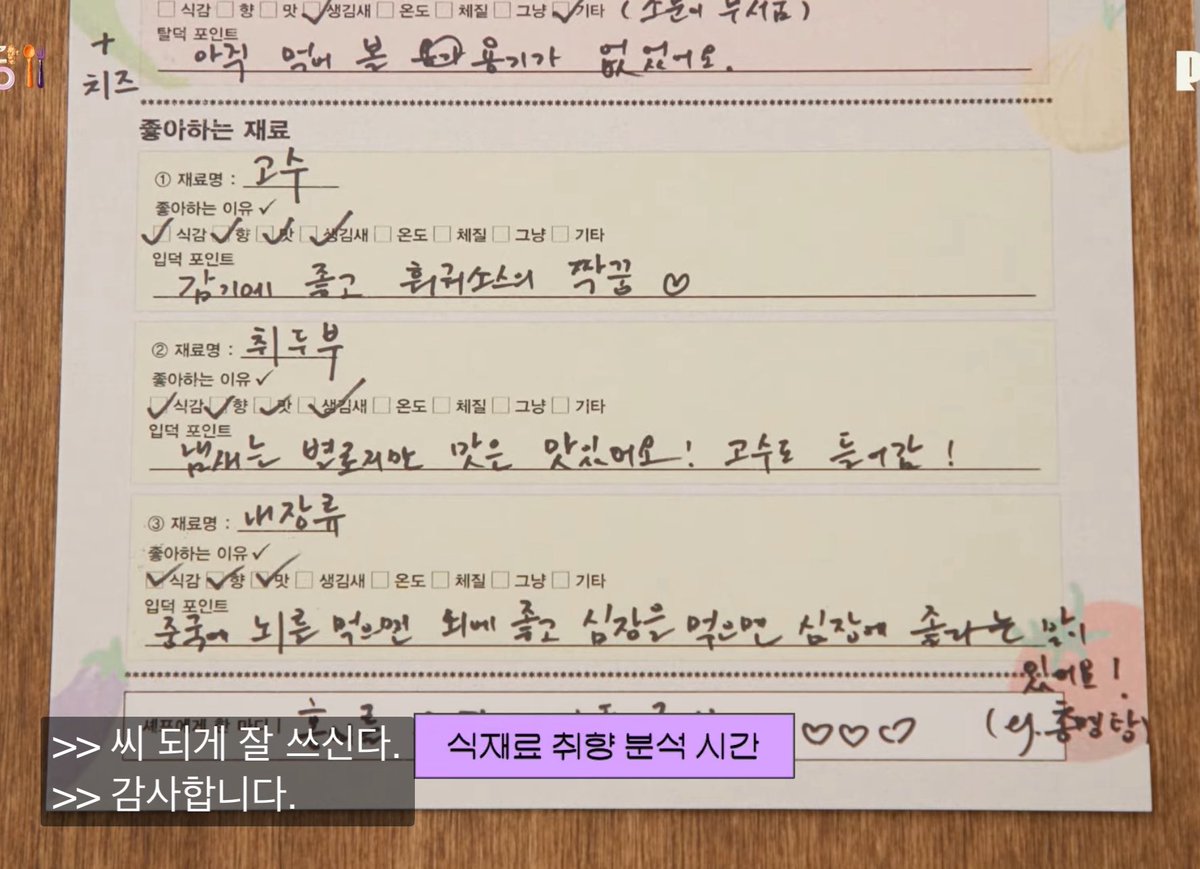 식감 향 맛 생김새 온도 체질 그냥 기타 (소문이 무서움)
탈덕 포인트
아직 먹어 볼 용기가 없었어요.
+
치즈
좋아하는 재료
① 재료명 : 고수
좋아하는 이유 ✓
식감 향 맛 생김새 온도 체질 그냥 기타
입덕 포인트
감기에 좋고 훠궈소스의 짝꿍 ♡
② 재료명 : 취두부
좋아하는 이유 ✓
식감 향 맛 생김새 온도 체질 그냥 기타
입덕 포인트
냄새는 별로지만 맛은 맛있어요! 고수도 들어감!
③ 재료명 : 내장류
좋아하는 이유 ✓
식감 향 맛 생김새 온도 체질 그냥 기타
입덕 포인트
중국에 뇌를 먹으면 뇌에 좋고 심장을 먹으면 심장에 좋다는 말이
있어요!
셰프에게 한 마디 ♡♡♡
>> 씨 되게 잘 쓰신다.
>> 감사합니다.
식재료 취향 분석 시간